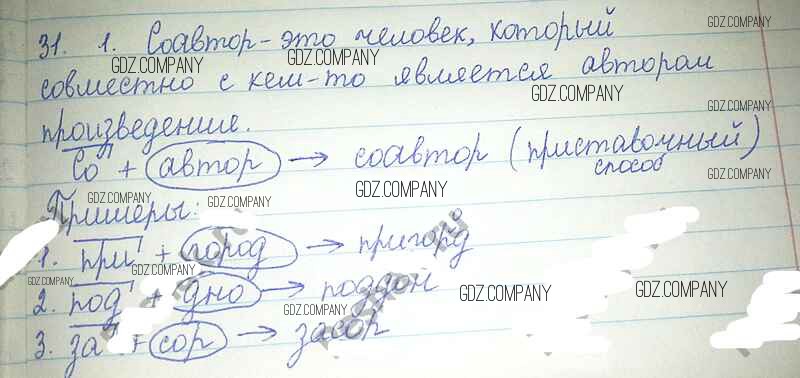 31. 1. Соавтор - это человек, который
совместно с кем-то является автором
произведение.
Со + автор → соавтор (приставочный способ)
Примеры:
1. при + город → пригорд
2. под + дно → поддон
3. за + сор → засор
GDZ.COMPANY
GDZ.COMPANY
GDZ.COMPANY
GDZ.COMPANY
GDZ.COMPANY
GDZ.COMPANY
GDZ.COMPANY
GDZ.COMPANY
GDZ.COMPANY
GDZ.COMPANY
GDZ.COMPANY
GDZ.COMPANY
GDZ.COMPANY
GDZ.COMPANY